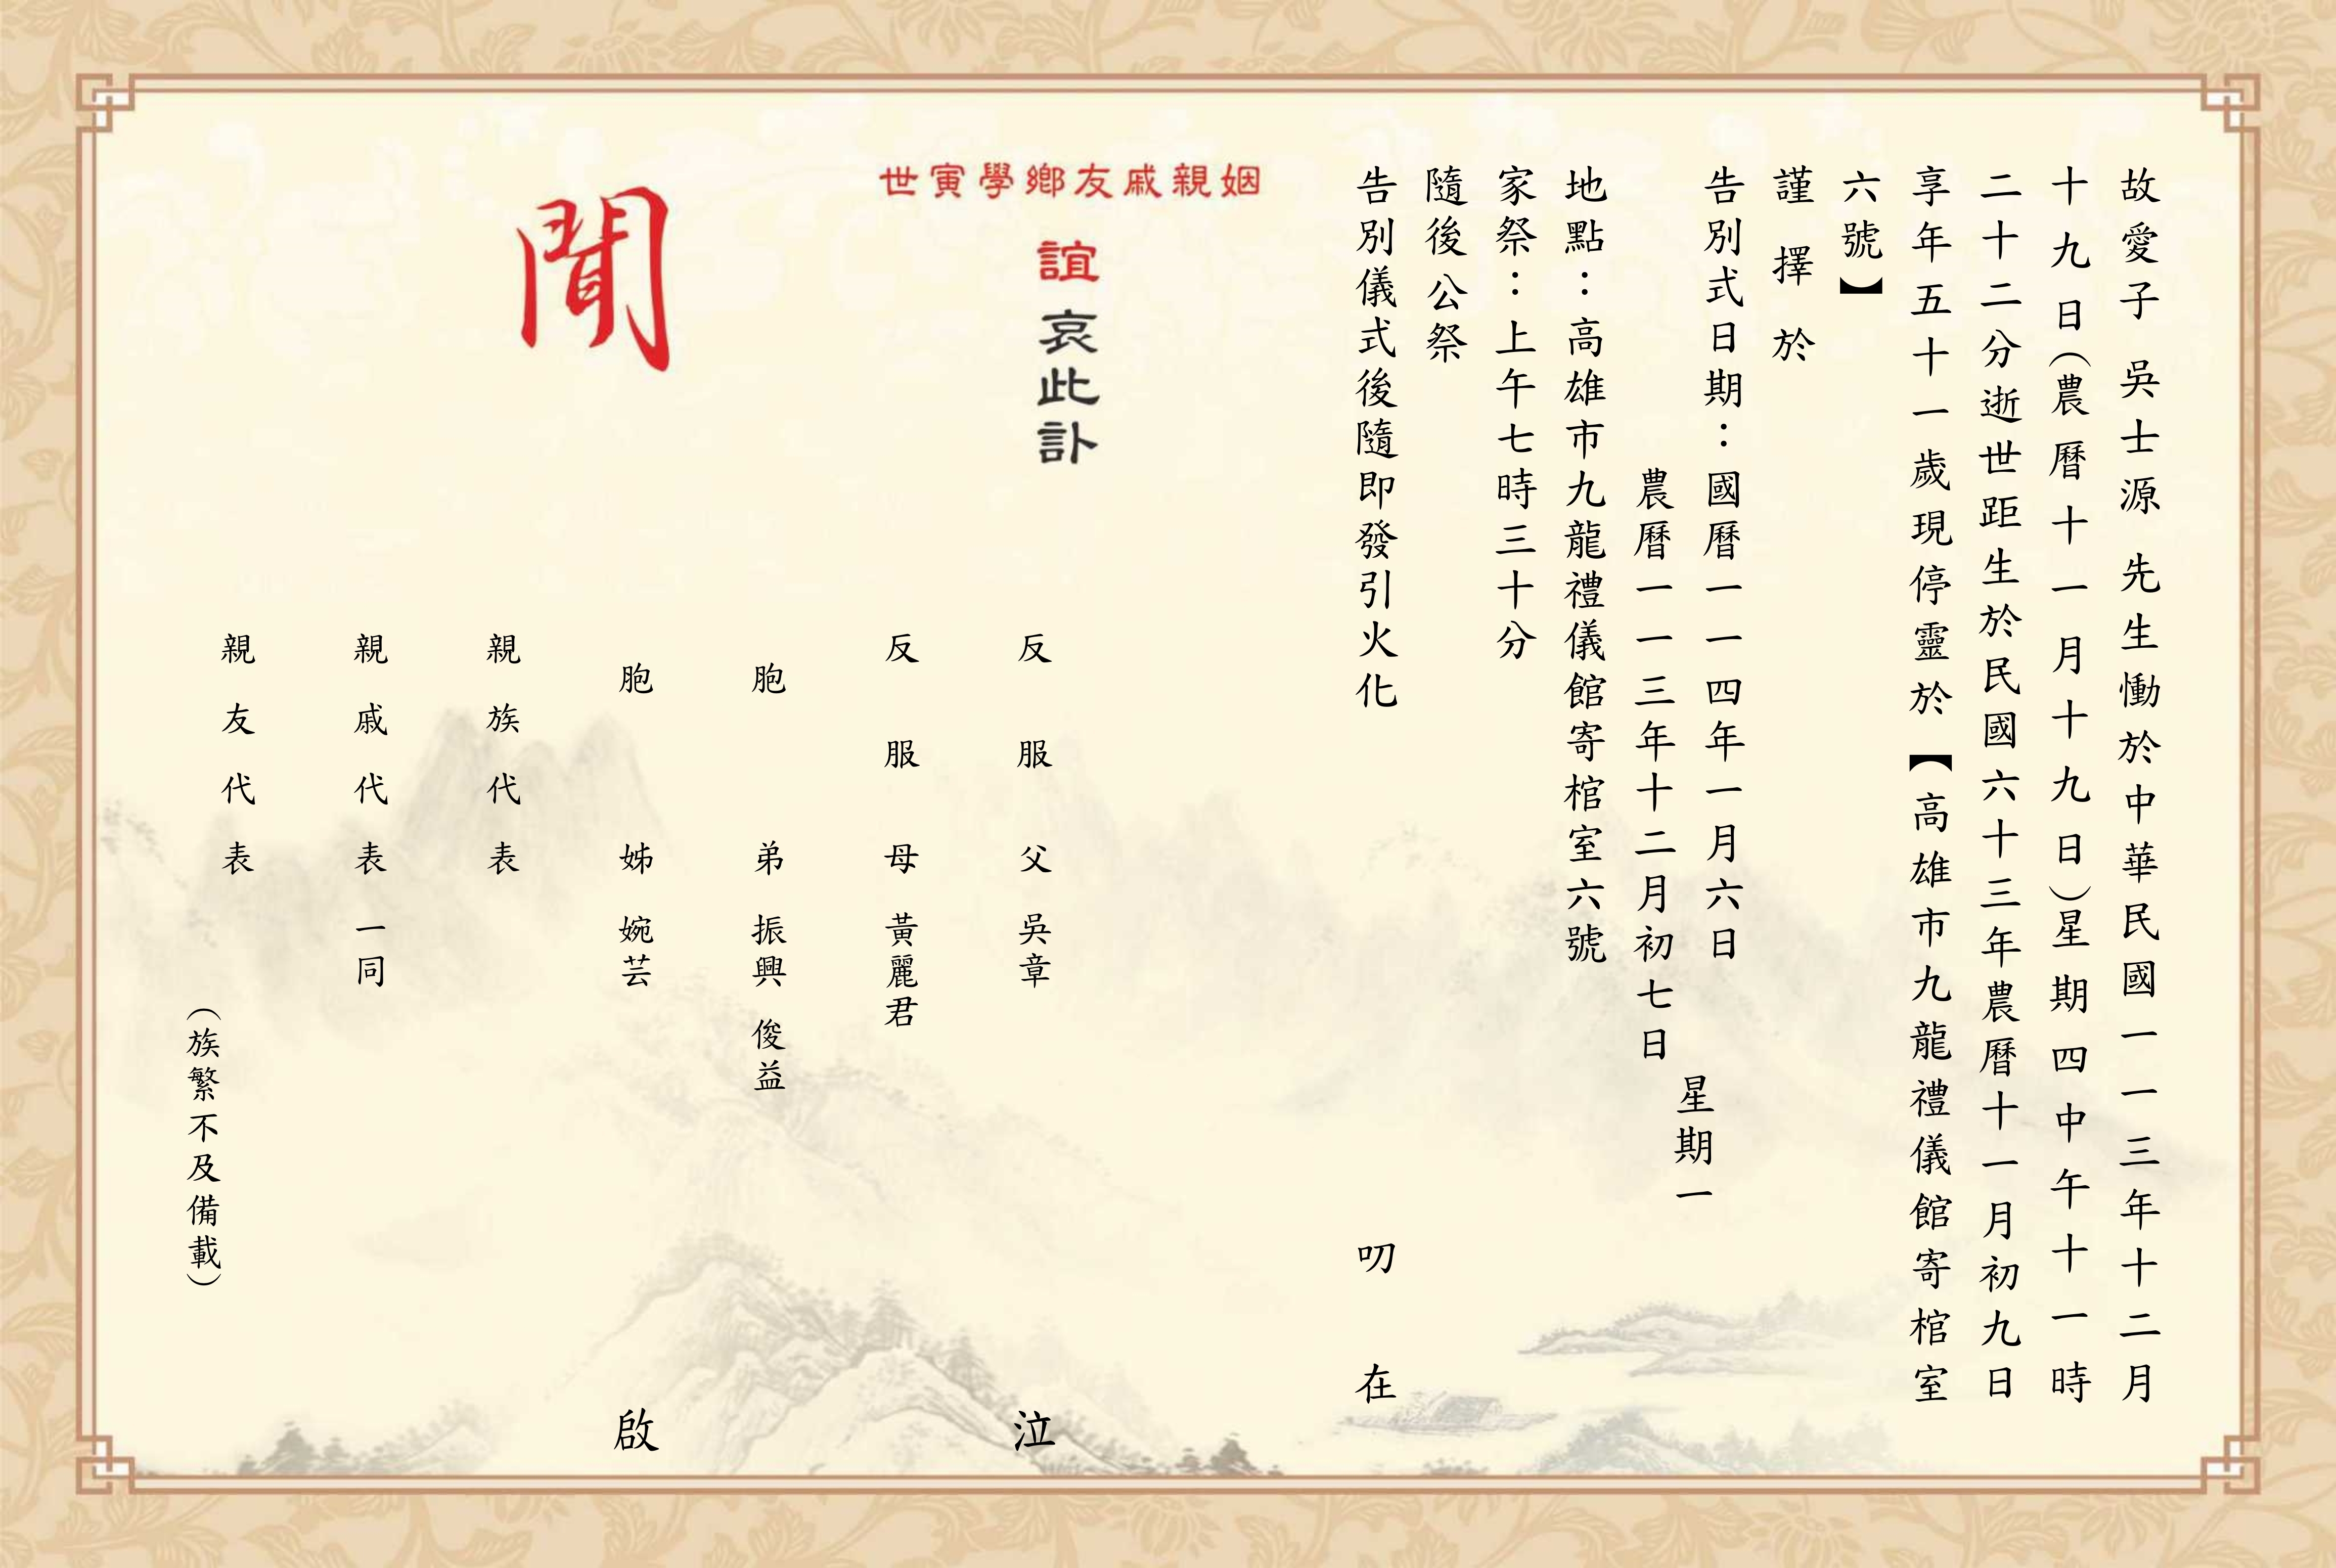 故愛子 吳士源 先生慟於中華民國一一三年十二月
十九日(農曆十一月十九日)星期四中午十一時
二十二分逝世距生於民國六十三年農曆十一月初九日
享年五十一歲現停靈於【高雄市九龍禮儀館寄棺室
六號】
謹擇於
告別式日期:國曆一一四年一月六日
農曆一一三年十二月初七日
星期一
地點:高雄市九龍禮儀館寄棺室六號
家祭:上午七時三十分
隨後公祭
告別儀式後隨即發引火化
叨在
姻親戚友鄉學寅世
誼哀此訃
聞
反服父 吳章
反服母 黃麗君
胞弟 振興 俊益
胞姊 婉芸
親族代表
親戚代表 一同
親友代表
(族繁不及備載)
泣
啟